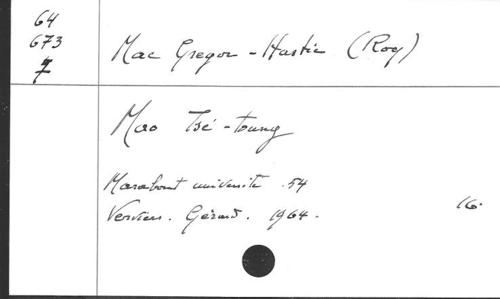 64
673
7
Mac Gregor - Hastie (Roy)
Mao Tsé-toung
Marabout université 54
Verviers. Gérard. 1964.
16.